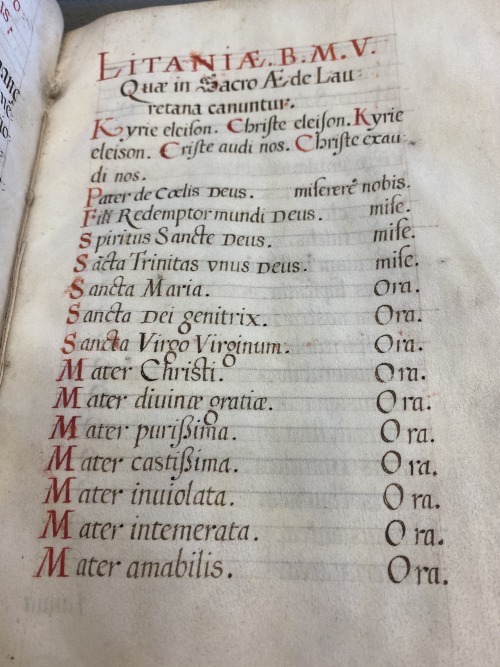 LITANIÆ. B. M. V.
Quæ in Sacro Æde Lau:
retana canuntur.
Kyrie eleiſon. Chriſte eleiſon. Kyrie
eleison. Criſte audi nos. Chriſte exau:
di nos.
Pater de Cœlis Deus. miſererè nobis.
Fili Redemptor mundi Deus. miſe.
Spiritus Sancte Deus. miſe.
Sãcta Trinitas vnus Deus. miſe.
Sancta Maria. Ora.
Sancta Dei genitrix. Ora.
Sancta Virgo Virginum. Ora.
Mater Chriſti. Ora.
Mater diuinæ gratiæ. Ora.
Mater purißima. Ora.
Mater castißima. Ora.
Mater inuiolata. Ora.
Mater intemerata. Ora.
Mater amabilis. Ora.